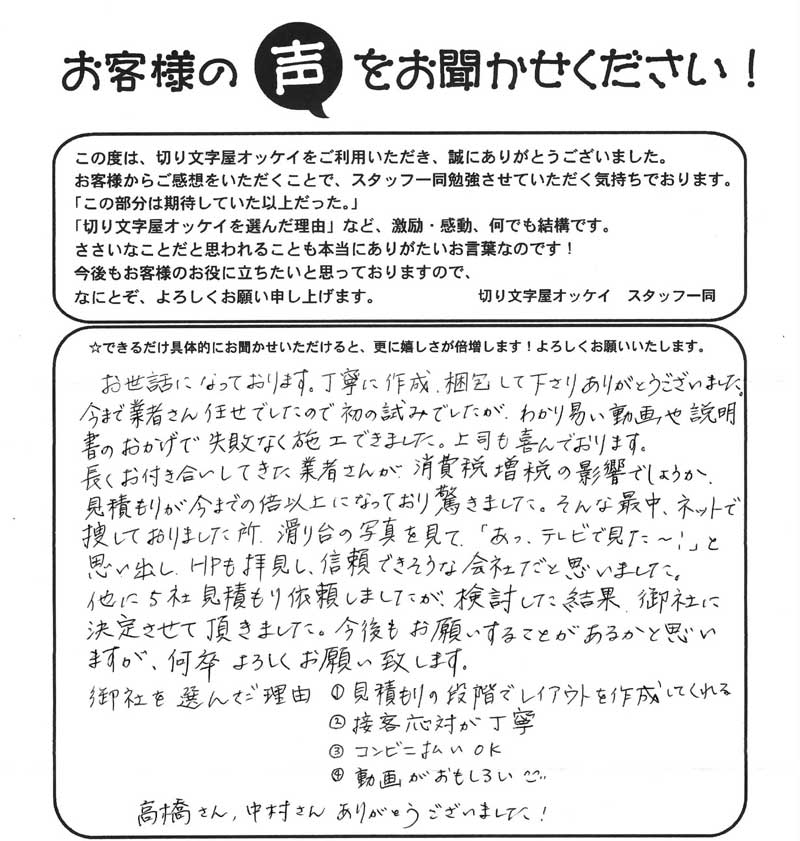 お客様の声をお聞かせください！
この度は、切り文字屋オッケイをご利用いただき、誠にありがとうございました。
お客様からご感想をいただくことで、スタッフ一同勉強させていただく気持ちでおります。
「この部分は期待していた以上だった。」
「切り文字屋オッケイを選んだ理由」など、激励・感動、何でも結構です。
ささいなことだと思われることも本当にありがたいお言葉なのです！
今後もお客様のお役に立ちたいと思っておりますので、
なにとぞ、よろしくお願い申し上げます。 切り文字屋オッケイ スタッフ一同
☆できるだけ具体的にお聞かせいただけると、更に嬉しさが倍増します！よろしくお願いいたします。
お世話になっております。丁寧に作成、梱包して下さりありがとうございました。
今まで業者さん任せでしたので初の試みでしたが、わかり易い動画や説明
書のおかげで失敗なく施工できました。上司も喜んでおります。
長くお付き合いしてきた業者さんが、消費税増税の影響でしょうか、
見積もりが今までの倍以上になっており驚きました。そんな最中、ネットで
捜しておりました所、滑り台の写真を見て、「あっ、テレビで見た〜！」と
思い出し、HPも拝見し、信頼できそうな会社だと思いました。
他に5社見積もり依頼しましたが、検討した結果、御社に
決定させて頂きました。今後もお願いすることがあるかと思い
ますが、何卒よろしくお願い致します。
御社を選んだ理由 ①見積もりの段階でレイアウトを作成してくれる
②接客応対が丁寧
③コンビニ払いOK
④動画がおもしろい
高橋さん、中村さんありがとうございました！